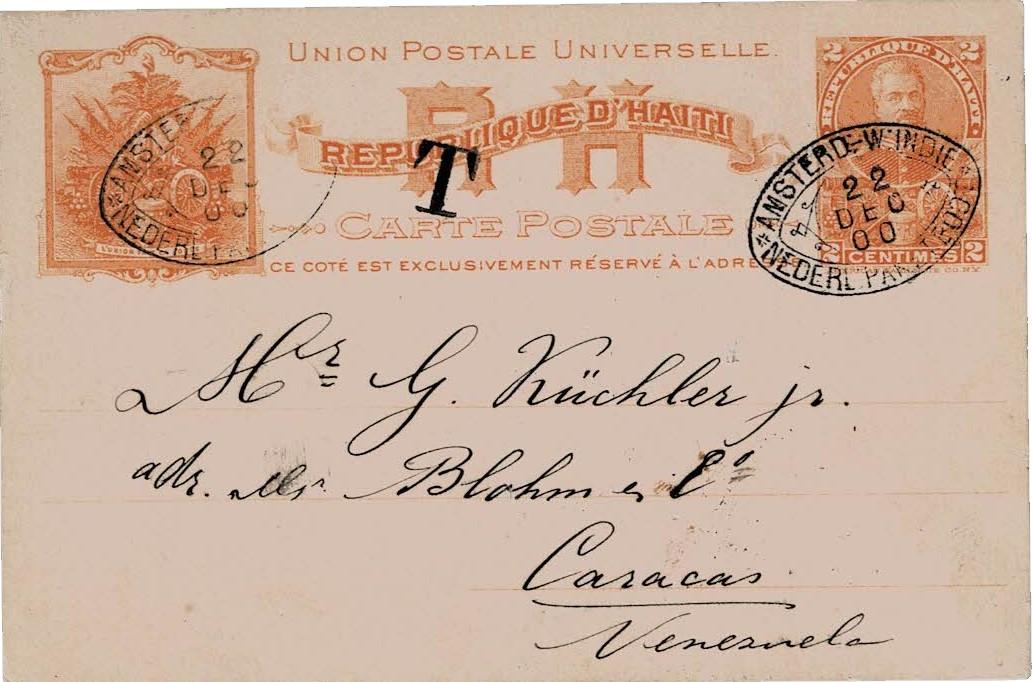 UNION POSTALE UNIVERSELLE.
RH
REPUBLIQUE D'HAITI
CARTE POSTALE
CE COTÉ EST EXCLUSIVEMENT RÉSERVÉ À L'ADRE
2 2
REPUBLIQUE D'HAITI
2 CENTIMES 2
T
AMSTER
22
DEC
00
NEDERL PA
AMSTERD-W'INDIE
22
DEC
00
NEDERL. PAK
Mr G. Küchler jr.
adr. Mr Blohm & Co
Caracas
Venezuela